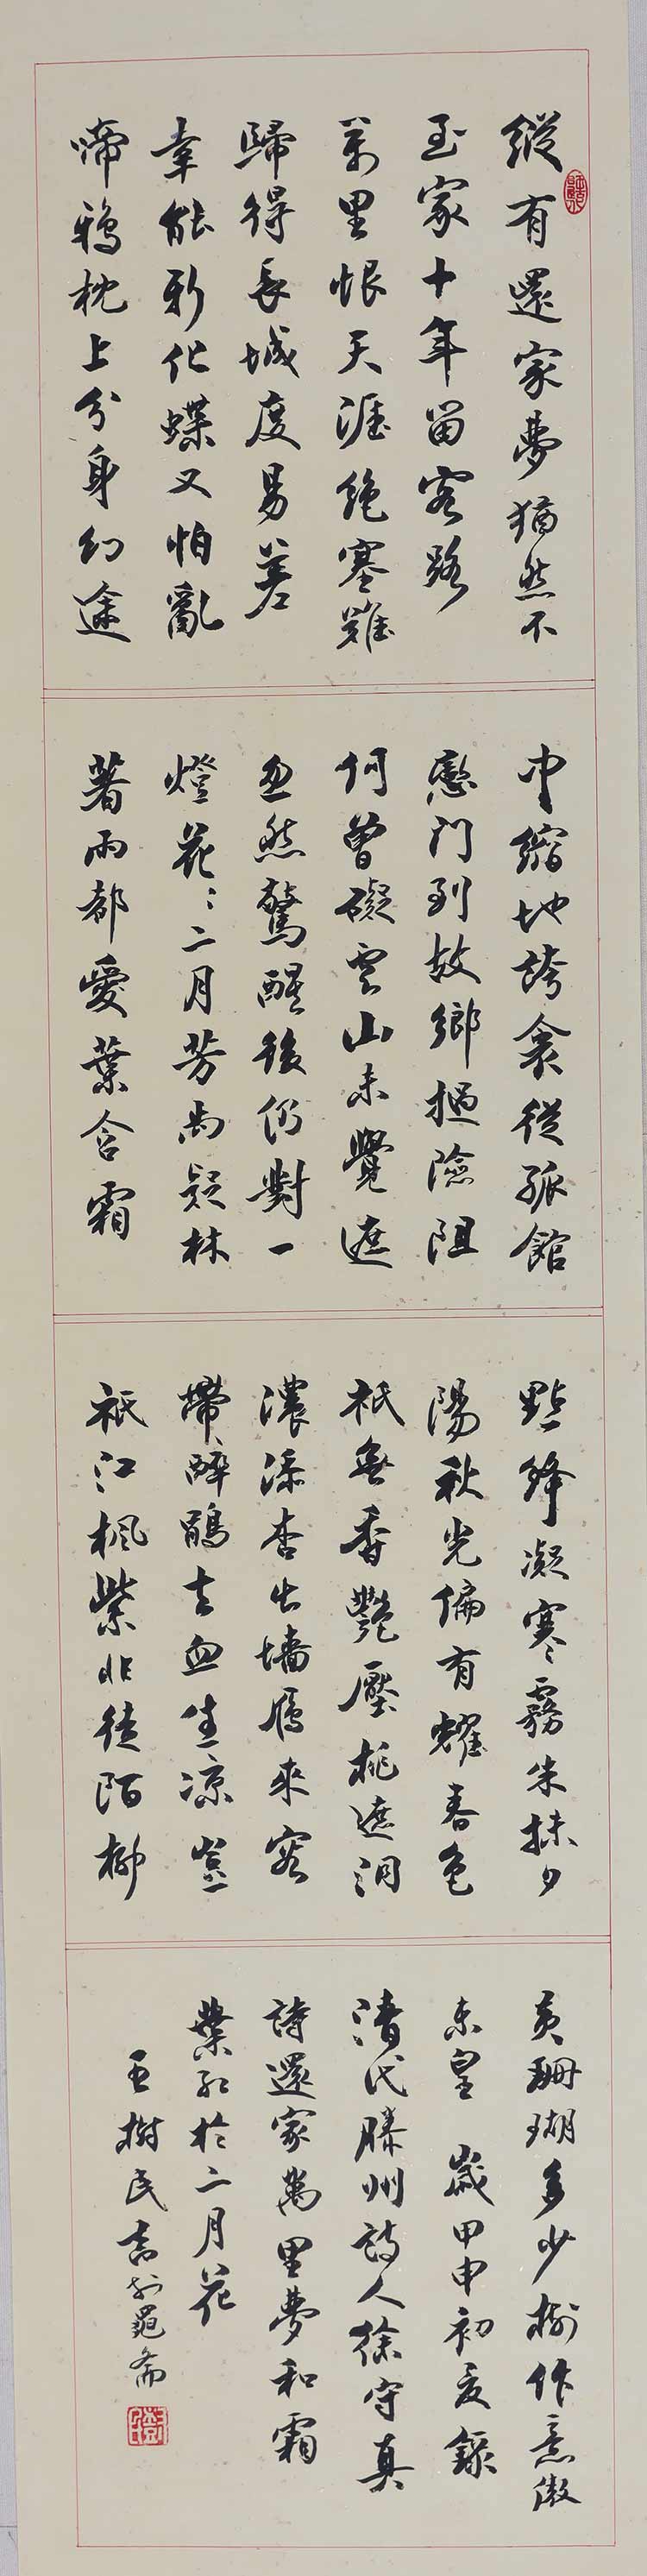 縱有還家夢猶然不
至家十年留客路
萬里恨天涯絕塞難
歸得長城度易差
幸能新化蝶又怕亂
啼鴉枕上分身幻途
中縮地誇衾從孤館
戀門到故鄉撾險阻
何曾礙雲山未覺遮
忽然驚醒後仍對一
燈花二月芳尚疑林
著雨都愛葉含霜
點絳凝寒霧朱抹夕
陽秋光偏有耀春色
祇無香艷壓桃遮洞
濃添杏出墻雁來客
帶醉鵑去血生涼豈
祇江楓紫非徒陌柳
黃珊瑚多少樹作意傲
東皇 歲甲申初夏錄
清代滕州詩人徐守真
詩還家萬里夢和霜
葉紅於二月花
王樹民書於 齋